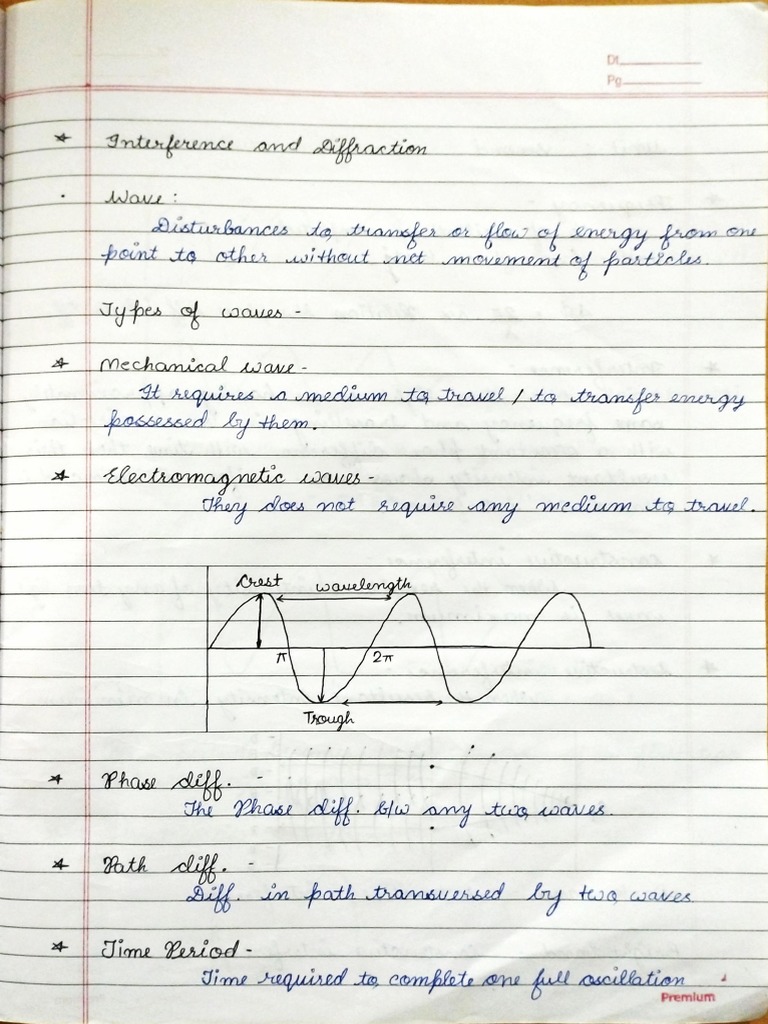 Dt.
Pg.
* Interference and Diffraction
. Wave :
Disturbances to transfer or flow of energy from one
point to other without net movement of particles.
Types of waves -
* Mechanical wave -
It requires a medium to travel / to transfer energy
possessed by them.
* Electromagnetic waves -
They does not require any medium to travel.
Crest wavelength
π 2π
Trough
* Phase diff. -
The Phase diff. b/w any two waves.
* Path diff. -
Diff. in path transversed by two waves
* Time Period -
Time required to complete one full oscillation
Premium